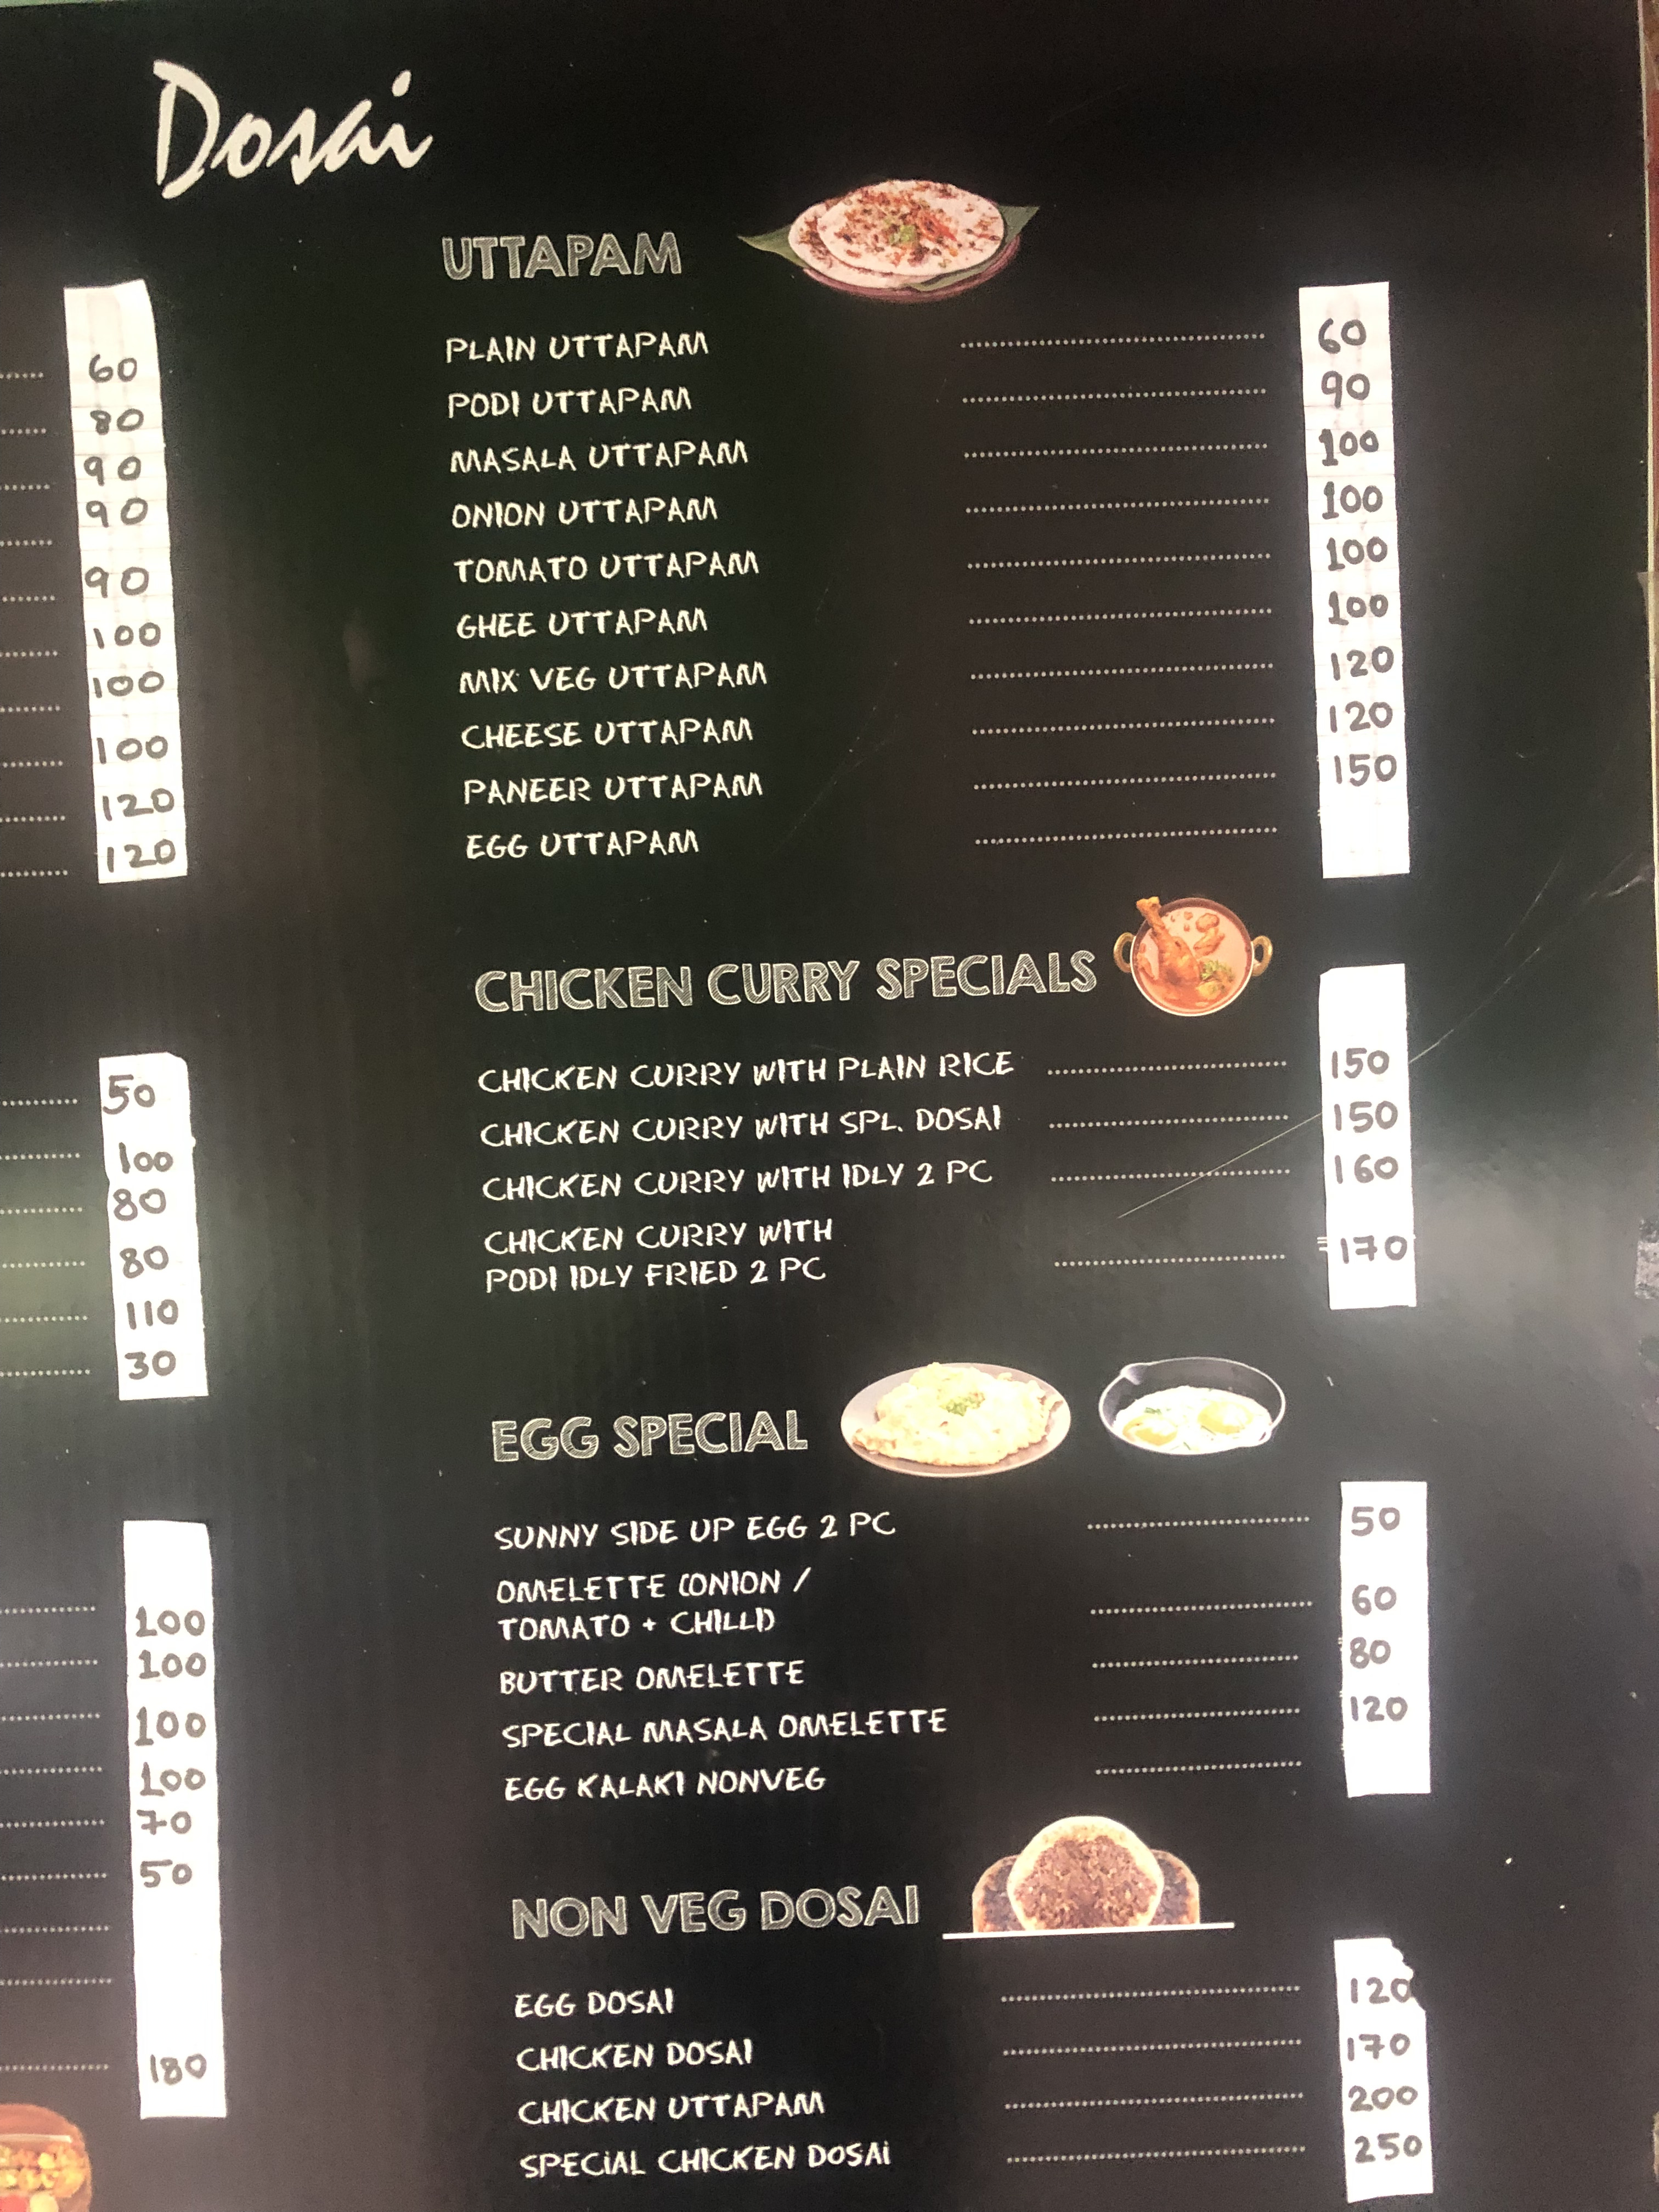 Dosai
60
80
90
90
90
100
100
100
120
120
50
100
80
80
110
30
100
100
100
100
70
50
180
UTTAPAM
PLAIN UTTAPAM 60
PODI UTTAPAM 90
MASALA UTTAPAM 100
ONION UTTAPAM 100
TOMATO UTTAPAM 100
GHEE UTTAPAM 100
MIX VEG UTTAPAM 120
CHEESE UTTAPAM 120
PANEER UTTAPAM 150
EGG UTTAPAM
CHICKEN CURRY SPECIALS
CHICKEN CURRY WITH PLAIN RICE 150
CHICKEN CURRY WITH SPL. DOSAI 150
CHICKEN CURRY WITH IDLY 2 PC 160
CHICKEN CURRY WITH
PODI IDLY FRIED 2 PC 170
EGG SPECIAL
SUNNY SIDE UP EGG 2 PC 50
OMELETTE (ONION /
TOMATO + CHILLI) 60
BUTTER OMELETTE 80
SPECIAL MASALA OMELETTE 120
EGG KALAKI NONVEG
NON VEG DOSAI
EGG DOSAI 120
CHICKEN DOSAI 170
CHICKEN UTTAPAM 200
SPECIAL CHICKEN DOSAI 250